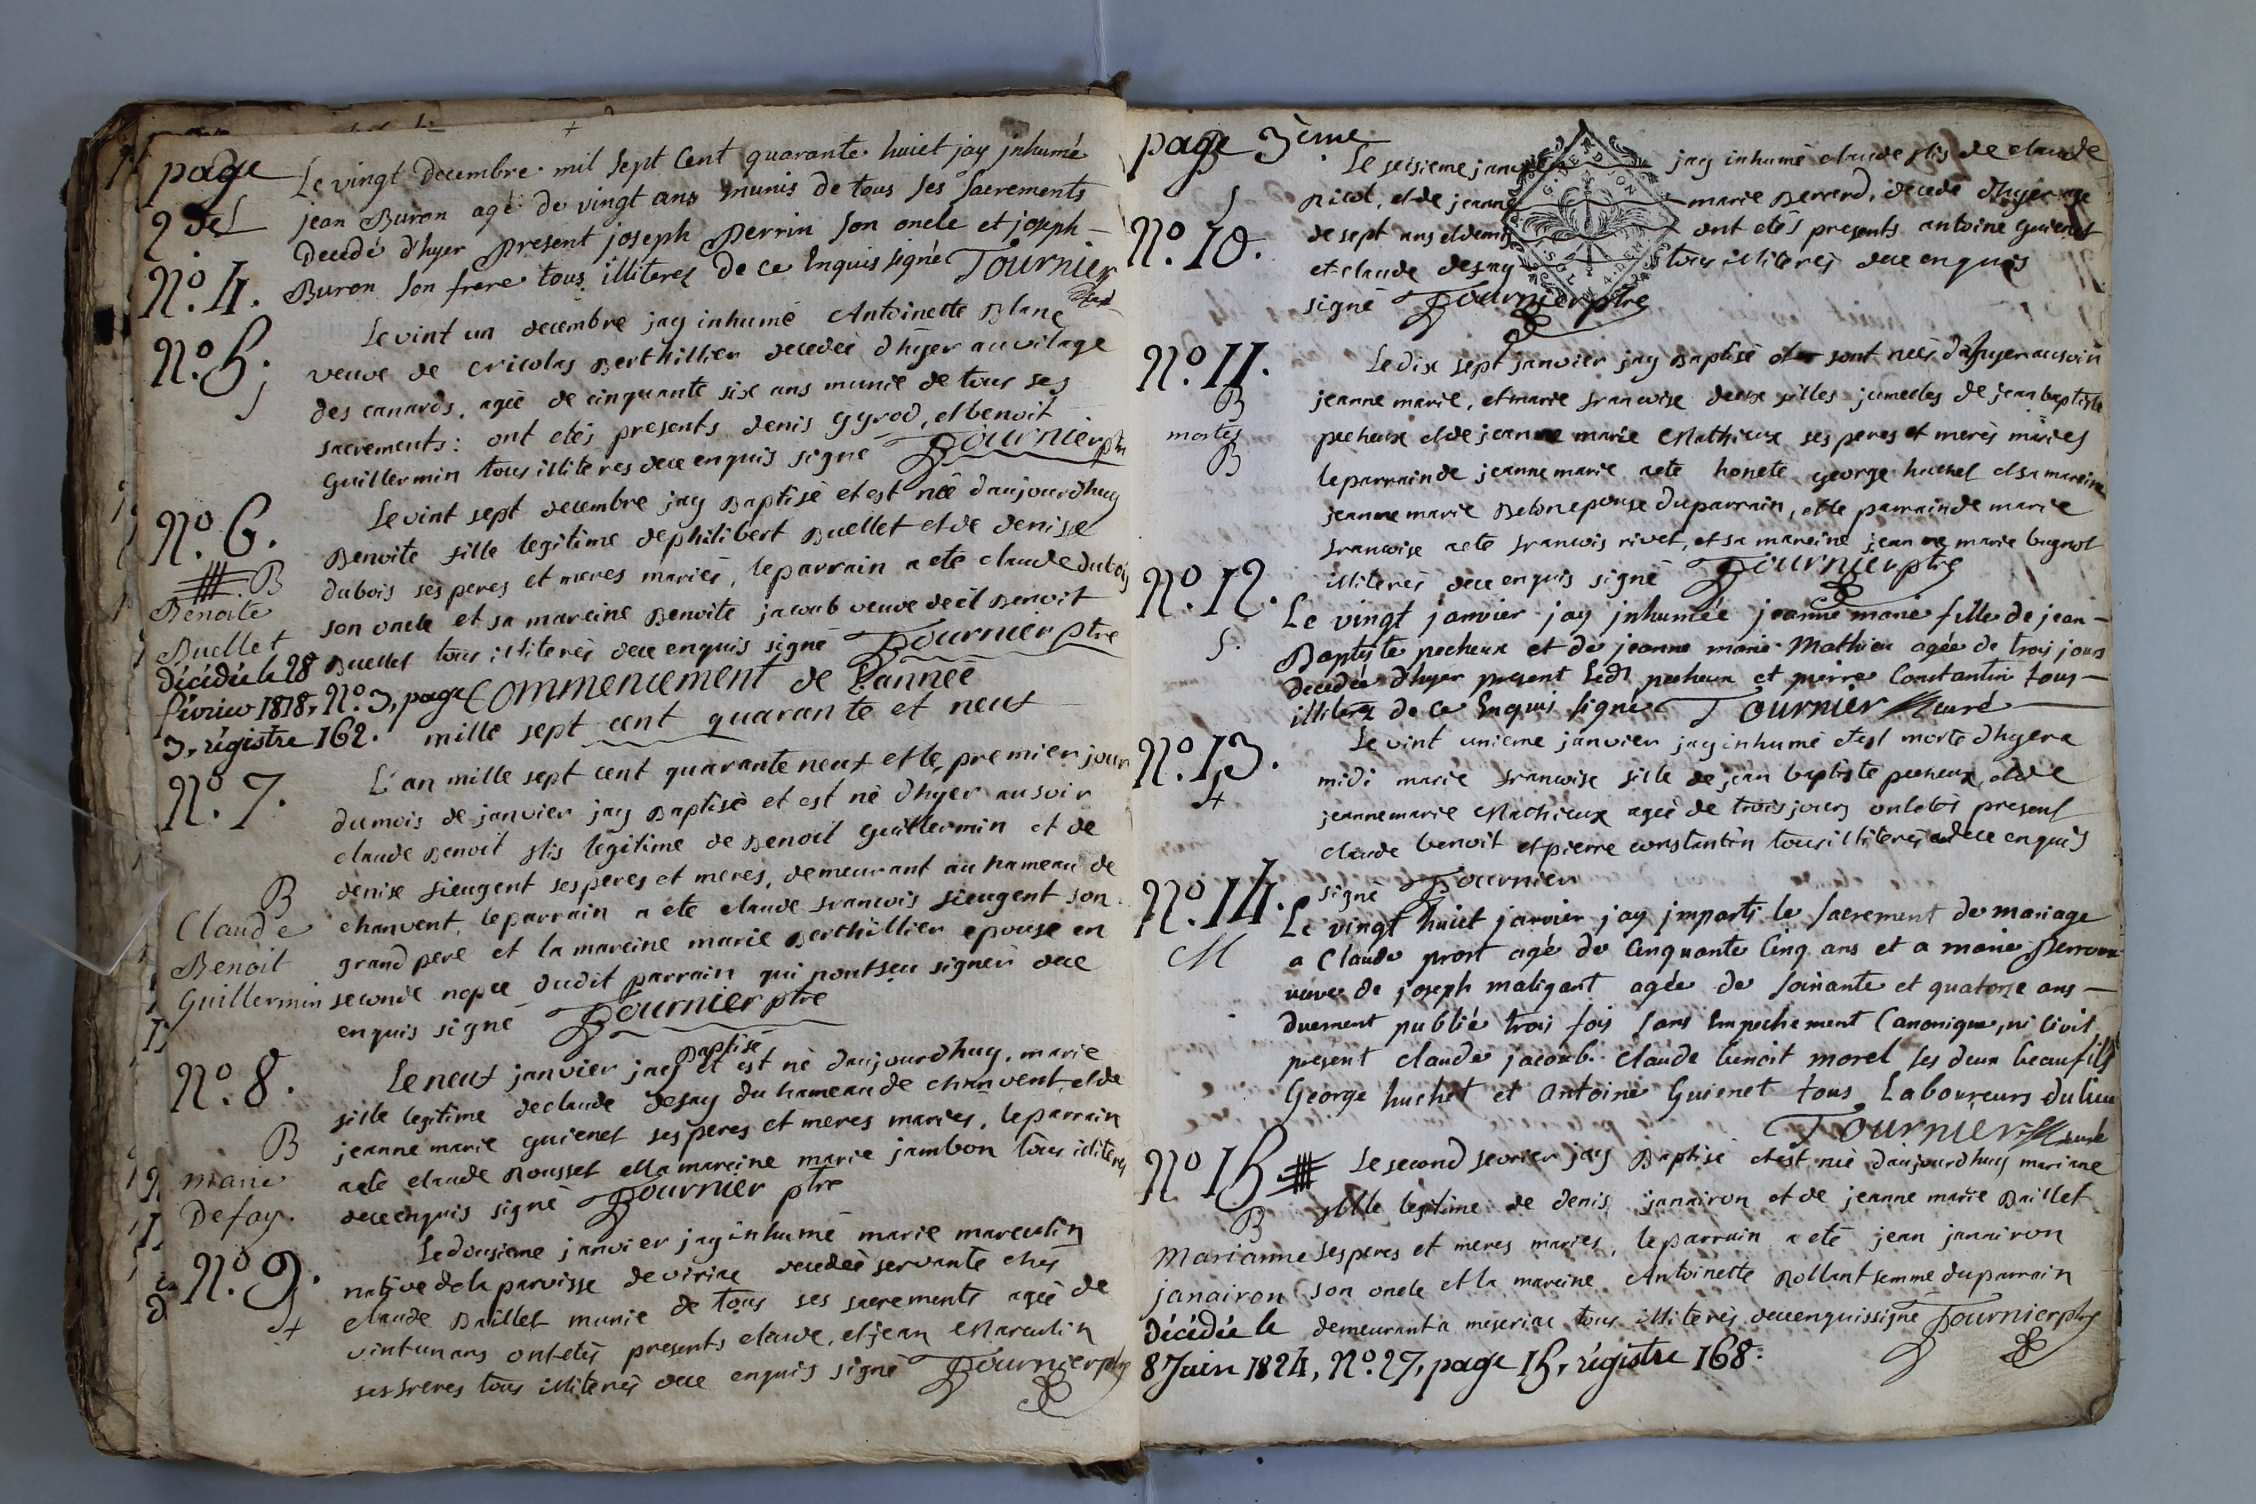 page
2 de
Le vingt decembre mil sept Cent quarante huict jay jnhumé
jean Buron agé de vingt ans munis de tous ses Sacrements
Decedé d'hyer present joseph perrin son oncle et joseph
N.º 4.
Buron son frere tous illiterez de ce Enquis signé Tournier
N.º 5.
Le vint un decembre jay inhumé Antoinette Blanc
veuve de nicolas Berthillier decedeé d'hyer au vilage
des canards, ageé de cinquante six ans munie de tous ses
sacrements: ont etés presents denis gyrod, et benoit
guillermin tous illiteres dece enquis signé Tournier ptre
N.º 6.
B
Benoite
Buellet
décédée le 28
février 1818, N.º 3, page
3, régistre 162.
Le vint sept decembre jay Baptisé et est neé daujourdhuy
Benoite fille legitime de philibert Buellet et de denise
dubois ses peres et meres mariés, le parrain a eté claude dubois
son oncle et sa mareine Benoite jacoub veuve de ël Benoit
Buellet tous illiterés dece enquis signé Tournier ptre
Commencement de l'année
mille sept cent quarante et neuf
N.º 7.
B
Claude
Benoit
Guillermin
L'an mille sept cent quarante neuf et le premier jour
du mois de janvier jay Baptisé et est né d'hyer au soir
claude Benoit fils legitime de Benoit guillermin et de
denise sieugent ses peres et meres, demeurant au hameau de
chanvent, le parrain a eté claude francois sieugent son
grand pere et la mareine marie Berthillier epouse en
seconde nopce dudit parrain qui nont sçu signér dece
enquis signé Tournier ptre
N.º 8.
B
Marie
Defay.
Baptisé
Le neuf janvier jay et est né daujourdhuy, marie
fille legitime de claude defay du hameau de chanvent, et de
jeanne marie guienet ses peres et meres mariés, le parrain
a eté claude Rousset et la mareine marie jambon tous illiterés
dece enquis signé Tournier ptre
N.º 9.
Le dousieme janvier jay inhumé marie marculin
native de la parroisse de viriac decedeé servante chés
claude Baillet munie de tous ses sacrements ageé de
vint un ans ont etés presents claude, et jean Marculin
ses freres tous illiterés dece enquis signé Tournier ptre
page 3ème
N.º 10.
Le seisieme janvier jay inhumé claude fils de claude
nicot, et de jeanne marie perrerd, decedé d'hyer age
de sept ans et demis ont etés presents antoine guienet
et claude defay tous illiterés dece enquis
signé Tournier ptre
N.º 11.
B
mortes
B
Le dix sept janvier jay Baptisé et sont neés d'hyer au soir
jeanne marie, et marie francoise deux filles jumelles de jean baptiste
pecheux et de jeanne marie Mathieux ses peres et merés mariés
le parrain de jeanne marie a eté honete george huchet et sa mareine
jeanne marie Belon epouse du parrain, et le parrain de marie
francoise a eté francois rivet, et sa mareine jeanne marie bugnot
illiterés dece enquis signé Tournier ptre
N.º 12.
S.
Le vingt janvier jay jnhumée jeanne marie fille de jean
Baptiste pecheux et de jeanne marie Mathieu agée de trois jours
decedée d'hyer present ledt pecheux et pierre Constantin tous
illiterez de ce Enquis signé Tournier Curé
N.º 13.
Le vint unieme janvier jay inhumé et est morte d'hyer a
midi marie francoise fille de jean baptiste pecheux, et de
jeanne marie Mathieux ageé de trois jours ont etés present
claude benoit et pierre constantin tous illiterés dece enquis
signé Tournier
N.º 14.
M
Le vingt huict janvier jay imparti le Sacrement de mariage
a Claude prost agé de Cinquante Cinq ans et a marie
veuve de joseph maligant agée de Soixante et quatorze ans
Duement publié trois fois sans Empechement Canonique, ni Civil
present claude jacoub. Claude benoit morel ses deux beaufils
George huchet et Antoine Guienet tous Laboureurs du lieu
Tournier Curé
N.º 15
B
Marianne
janairon
décédée le
8 Juin 1824, N.º 27, page 15, régistre 168.
Le second fevrier jay Baptisé et est neé daujourdhuy mariane
fille legitime de denis janairon et de jeanne marie Baillet
ses peres et meres mariés, le parrain a eté jean janairon
son oncle et la mareine Antoinette Rollant femme du parrain
demeurant a meseriac tous illiterés dece enquis signé Tournier ptre